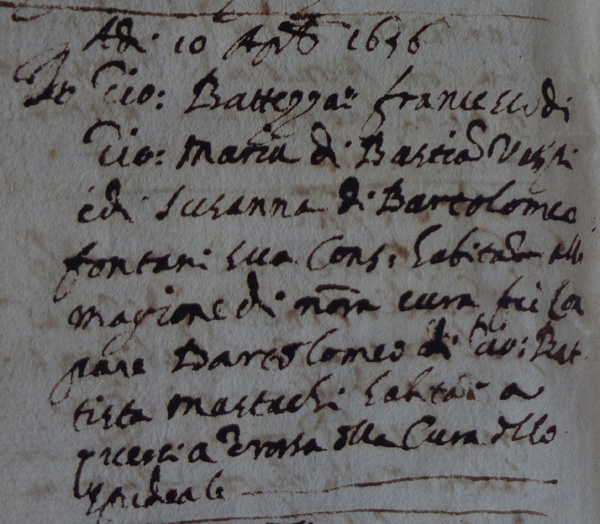 Adi 10 Aprle 1656
Io Gio: Battezzai francesco di
Gio: Maria di Bastiao
e di Susanna di Bartolomeo
fontani sua Cons: habitan alla
Magione di nora cura fu Com
pare Bartolomeo di Gio: Bat
tista Mastachi habitan a
della Cura dello
Spideale